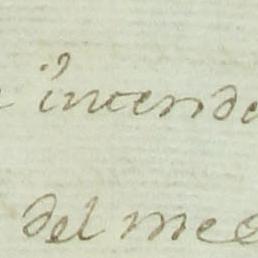 intende
del me